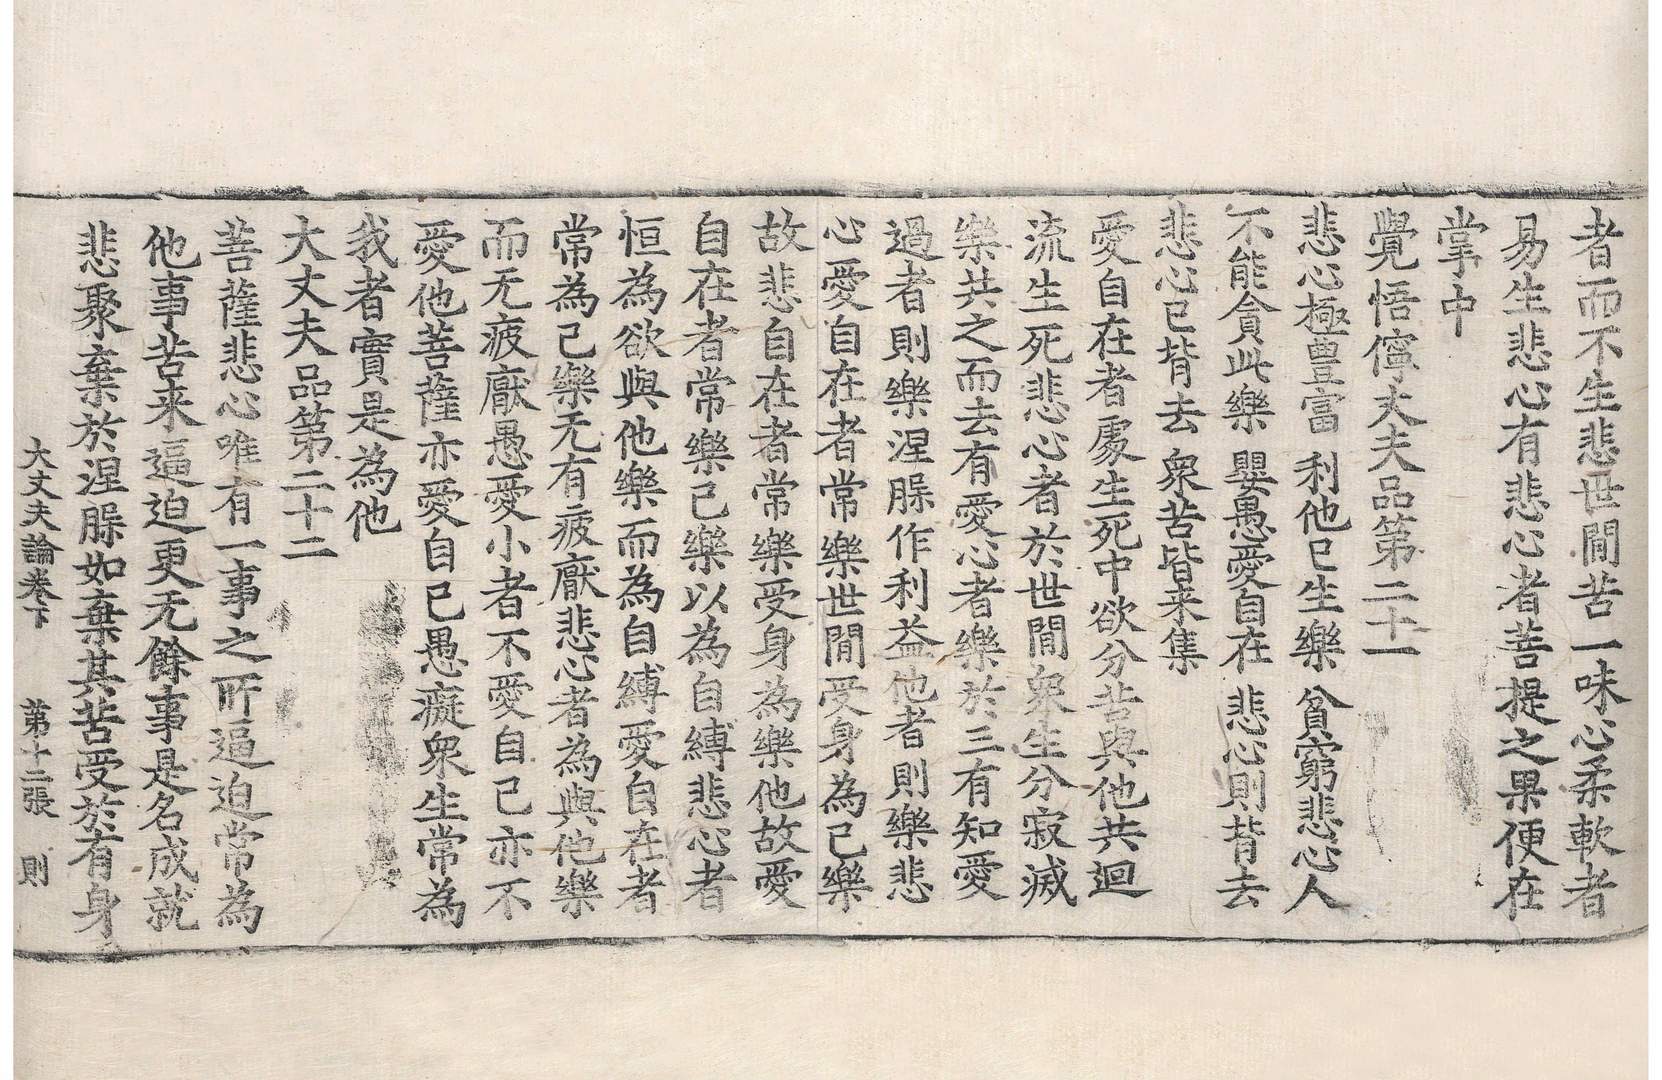 者而不生悲世間苦一味心柔軟者
易生悲心有悲心者菩提之果便在
掌中
覺悟𡫸丈夫品第二十一
悲心極豊富 利他已生樂 貧窮悲心人
不能貪此樂 嬰愚愛自在 悲心則背去
悲心已背去 衆苦皆来集
愛自在者處生死中欲分苦與他共迴
流生死悲心者於世間衆生分寂滅
樂共之而去有愛心者樂於三有知愛
過者則樂涅槃作利益他者則樂悲
心愛自在者常樂世間受身為己樂
故悲自在者常樂受身為樂他故愛
自在者常樂己樂以為自縛悲心者
恒為欲與他樂而為自縛愛自在者
常為己樂无有疲厭悲心者為與他樂
而无疲厭愚愛小者不愛自己亦不
愛他菩薩亦愛自己愚癡衆生常為
我者實是為他
大丈夫品第二十二
菩薩悲心唯有一事之所逼迫常為
他事苦来逼迫更无餘事是名成就
悲聚棄於涅槃如棄其苦受於有身
大丈夫論卷下 第十二張 則